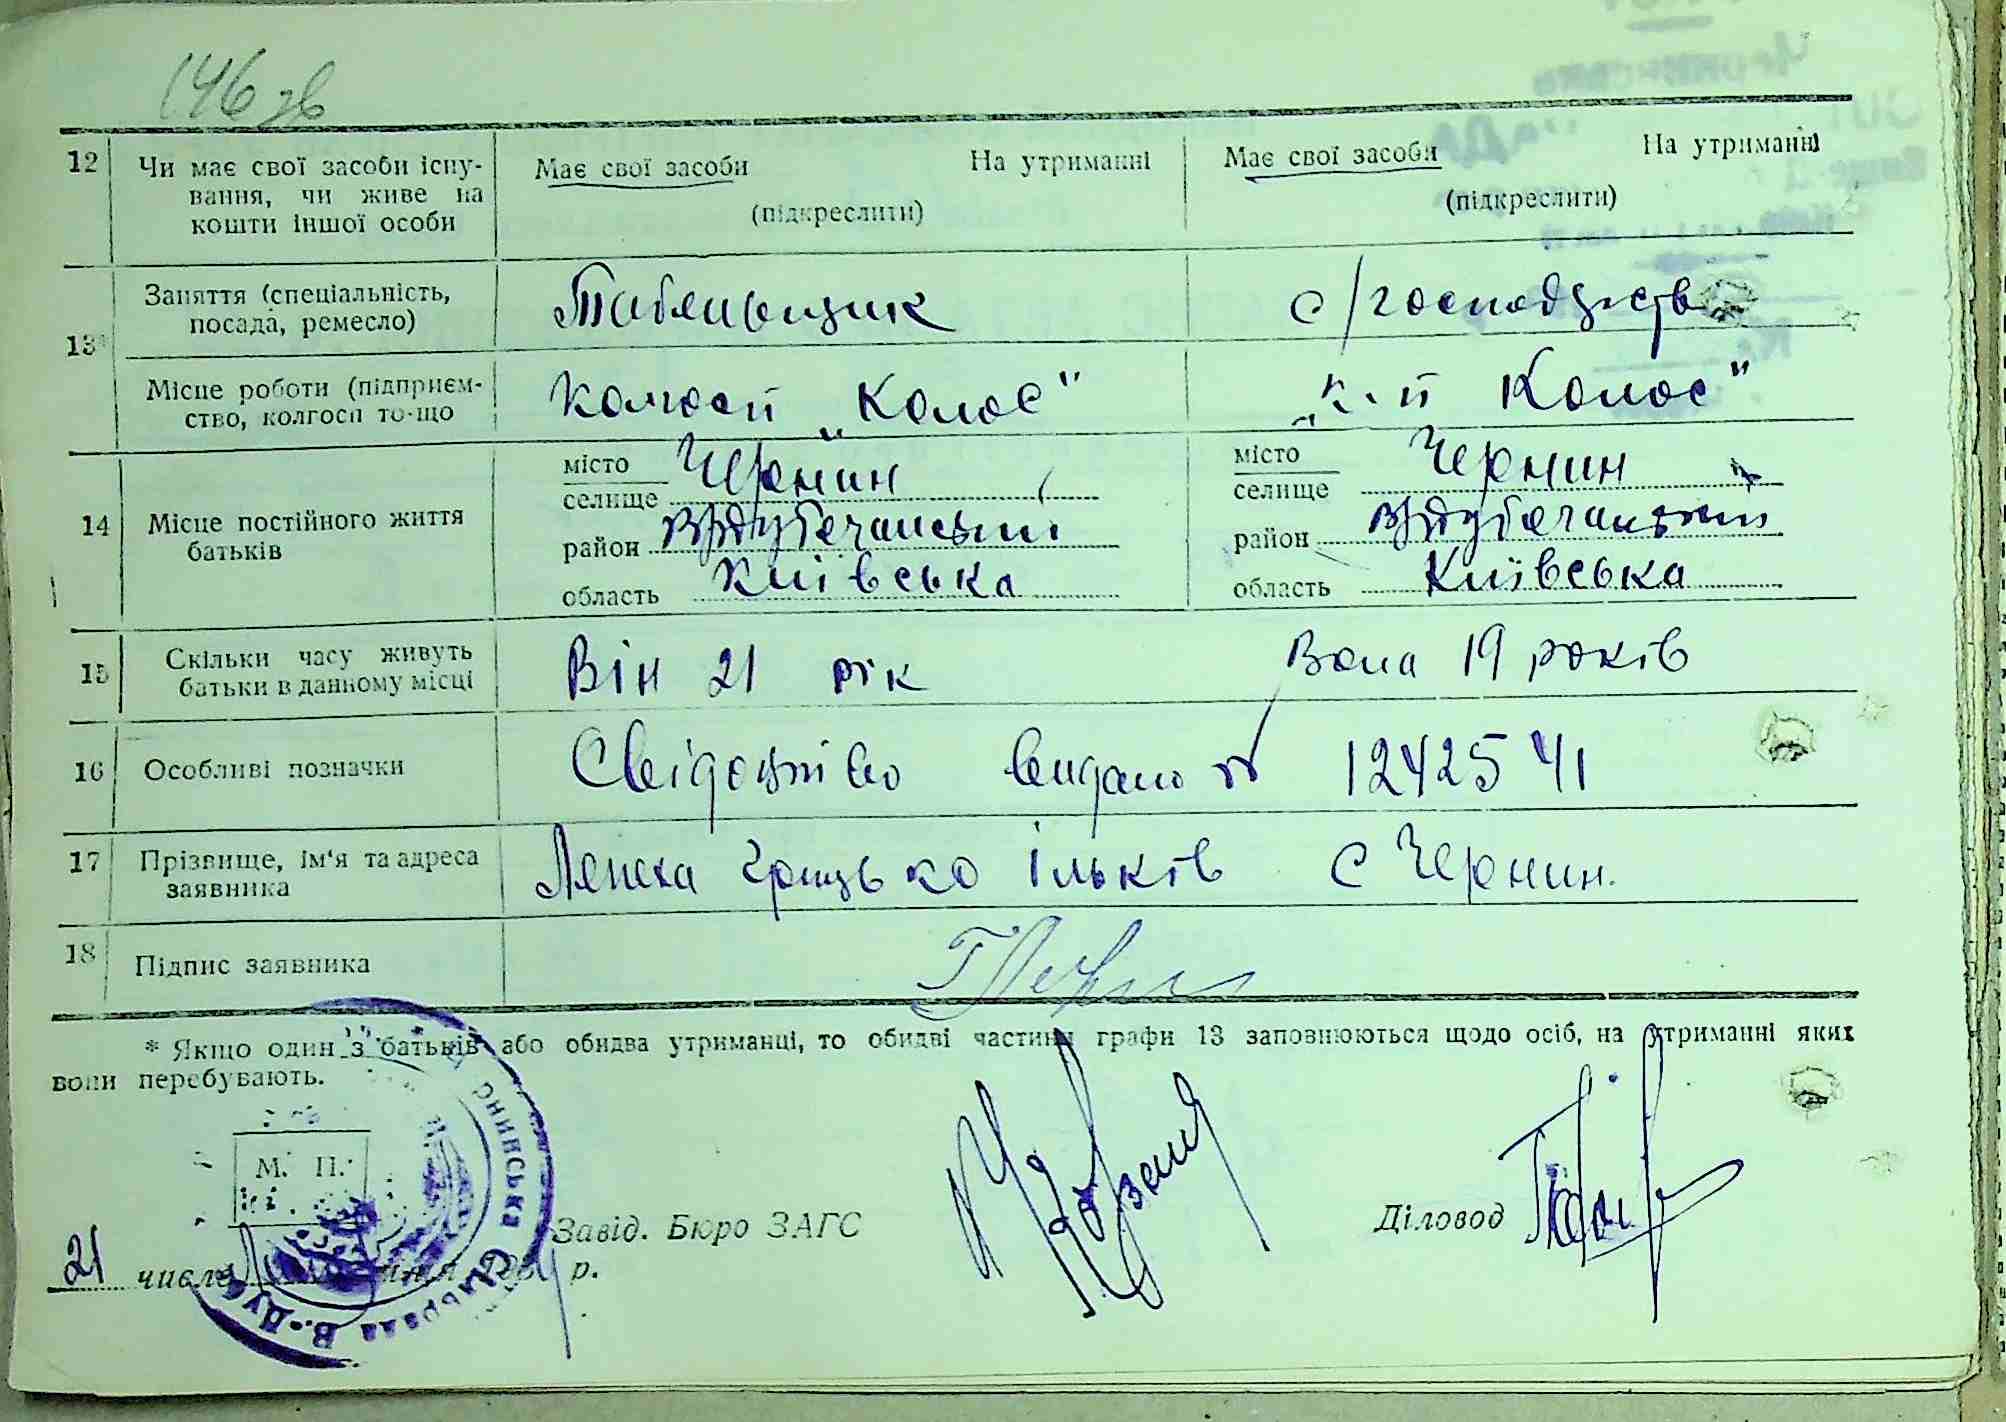 146 зв
12 Чи має свої засоби існу- Має свої засоби На утриманні Має свої засоби На утриманні
вання, чи живе на (підкреслити) (підкреслити)
кошти іншої особи
13* Заняття (спеціальність, Табельщик с/господарств
посада, ремесло)
Місце роботи (підприєм- колгосп „Колос" „к-п Колос"
ство, колгосп то-що
14 Місце постійного життя місто Чернин місто Чернин
батьків селище селище
район В/дубечанський район В/дубечанський
область Київська область Київська
15 Скільки часу живуть Він 21 рік Вона 19 років
батьки в данному місці
16 Особливі позначки Свідоцтво видано № 1242541
17 Прізвище, ім'я та адреса Лепеха Грицько Ільків с Чернин.
заявника
18 Підпис заявника
* Якщо один з батьків або обидва утриманці, то обидві частини графи 13 заповнюються щодо осіб, на утриманні яких
вони перебувають.
М. П.
Завід. Бюро ЗАГС
Діловод
21 числа р.
Сільрада В.-Дуб